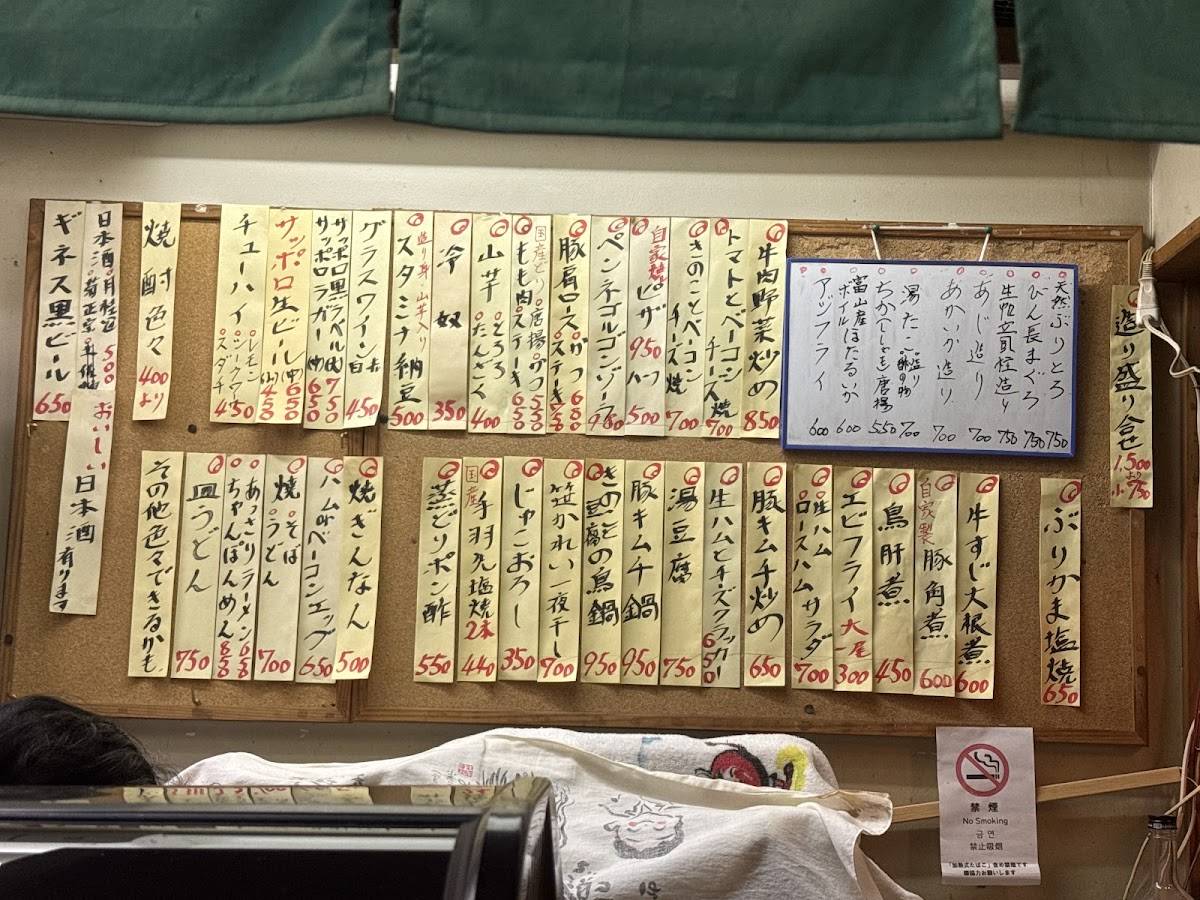 造り盛り合せ 1,500より 小750
天然ぶりとろ 750
びん長まぐろ 750
生帆立貝柱造り 750
あじ造り 700
あかいか造り 700
湯たこ 造り 酢の物 700
ちか(ししゃも)唐揚 550
富山産ボイルほたるいか 600
アジフライ 600
牛肉野菜炒め 850
トマトとベーコンチーズ焼 700
きのことベーコンチーズ焼 700
自家焼ピザ 950 ハーフ 500
ペンネゴルゴンゾーラ
豚肩ロース
国産とり 唐揚
もも肉 ステーキ
山芋 とろろ たんざく 400
冷奴 350
スタミナ納豆 造り身・山芋入り 500
グラスワイン 赤 白 450
サッポロ黒ラベル(大) 750
サッポロラガー(中) 650
サッポロ生ビール(中) 650 (小) 450
チューハイ レモン スダチ 450
焼酎色々 400より
日本酒 月桂冠 菊正宗 500
ギネス黒ビール 650
おいしい日本酒有ります
ぶりかま塩焼 650
牛すじ大根煮 600
自家製豚角煮 600
鳥肝煮 450
エビフライ大一尾 300
生ハム ロースハム サラダ 700
豚キムチ炒め 650
生ハムとチーズクラッカー 650
湯豆腐 750
豚キムチ鍋 950
きのこと豆腐の鳥鍋 950
笹かれい一夜干し 700
じゃこおろし 350
国産手羽先塩焼 2本 440
蒸どりポン酢 550
焼ぎんなん 500
ハムorベーコンエッグ 650
焼 そば うどん 700
あっさりラーメン 650
ちゃんぽんめん 850
皿うどん 750
その他色々できるかも
禁煙
No Smoking
금연
禁止吸烟
「加熱式たばこ」含め禁煙です
御協力お願いします